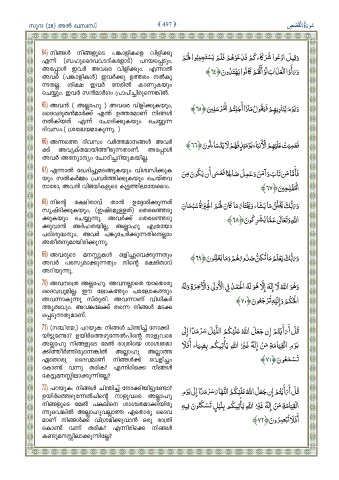 സൂറ (28) അൽ ഖസസ്
﴾ 497 ﴿
سُورَةُ القَصَص
64) നിങ്ങൾ നിങ്ങളുടെ പങ്കാളികളെ വിളിക്കൂ
എന്ന് (ബഹുദൈവവാദികളോട്) പറയപ്പെടും.
അപ്പോൾ ഇവർ അവരെ വിളിക്കും. എന്നാൽ
അവർ (പങ്കാളികൾ) ഇവർക്കു ഉത്തരം നൽകു
ന്നതല്ല. ശിക്ഷ ഇവർ നേരിൽ കാണുകയും
ചെയ്യും. ഇവർ സൻമാർഗം പ്രാപിച്ചിരുന്നെങ്കിൽ.
وَقِيلَ ادْعُوا شُرَكَاءَكُمْ فَدَعَوْهُمْ فَلَمْ يَسْتَجِيبُوا لَهُمْ
وَرَأَوُا الْعَذَابَ لَوْ أَنَّهُمْ كَانُوا يَهْتَدُونَ ﴿٦٤﴾
65) അവൻ ( അല്ലാഹു ) അവരെ വിളിക്കുകയും,
ദൈവദൂതൻമാർക്ക് എന്ത് ഉത്തരമാണ് നിങ്ങൾ
നൽകിയത് എന്ന് ചോദിക്കുകയും ചെയ്യുന്ന
ദിവസം.( ശ്രദ്ധേയമാകുന്നു. )
وَيَوْمَ يُنَادِيهِمْ فَيَقُولُ مَاذَا أَجَبْتُمُ الْمُرْسَلِينَ ﴿٦٥﴾
66) അന്നത്തെ ദിവസം വർത്തമാനങ്ങൾ അവർ
ക്ക് അവ്യക്തമായിത്തീരുന്നതാണ്. അപ്പോൾ
അവർ അന്യോന്യം ചോദിച്ചറിയുകയില്ല.
فَعَمِيَتْ عَلَيْهِمُ الْأَنْبَاءُ يَوْمَئِذٍ فَهُمْ لَا يَتَسَاءَلُونَ ﴿٦٦﴾
67) എന്നാൽ ഖേദിച്ചുമടങ്ങുകയും വിശ്വസിക്കുക
യും സൽകർമ്മം പ്രവർത്തിക്കുകയും ചെയ്തവ
നാരോ, അവൻ വിജയികളുടെ കൂട്ടത്തിലായേക്കാം.
فَأَمَّا مَنْ تَابَ وَآمَنَ وَعَمِلَ صَالِحًا فَعَسَى أَنْ يَكُونَ مِنَ
الْمُفْلِحِينَ ﴿٦٧﴾
68) നിന്റെ രക്ഷിതാവ് താൻ ഉദ്ദേശിക്കുന്നത്
സൃഷ്ടിക്കുകയും, (ഇഷ്ടമുള്ളത്) തെരഞ്ഞെടു
ക്കുകയും ചെയ്യുന്നു. അവർക്ക് തെരഞ്ഞെടു
ക്കുവാൻ അർഹതയില്ല. അല്ലാഹു എത്രയോ
പരിശുദ്ധനും, അവർ പങ്കുചേർക്കുന്നതിനെല്ലാം
അതീതനുമായിരിക്കുന്നു.
وَرَبُّكَ يَخْلُقُ مَا يَشَاءُ وَيَخْتَارُ مَا كَانَ لَهُمُ الْخِيَرَةُ سُبْحَانَ
اللَّهِ وَتَعَالَى عَمَّا يُشْرِكُونَ ﴿٦٨﴾
69) അവരുടെ മനസ്സുകൾ ഒളിച്ചുവെക്കുന്നതും
അവർ പരസ്യമാക്കുന്നതും നിന്റെ രക്ഷിതാവ്
അറിയുന്നു.
وَرَبُّكَ يَعْلَمُ مَا تُكِنُّ صُدُورُهُمْ وَمَا يُعْلِنُونَ ﴿٦٩﴾
70) അവനത്രെ അല്ലാഹു. അവനല്ലാതെ യാതൊരു
ദൈവവുമില്ല. ഈ ലോകത്തും പരലോകത്തും
അവന്നാകുന്നു സ്തുതി. അവന്നാണ് വിധികർ
ത്തൃത്വവും. അവങ്കലേക്ക് തന്നെ നിങ്ങൾ മടക്ക
പ്പെടുന്നതുമാണ്.
وَهُوَ اللَّهُ لَا إِلَهَ إِلَّا هُوَ لَهُ الْحَمْدُ فِي الْأُولَى وَالْآخِرَةِ وَلَهُ
الْحُكْمُ وَإِلَيْهِ تُرْجَعُونَ ﴿٧٠﴾
71) (നബിയേ,) പറയുക: നിങ്ങൾ ചിന്തിച്ച് നോക്കി
യിട്ടുണ്ടോ? ഉയിർത്തെഴുന്നേൽപിന്റെ നാളുവരെ
അല്ലാഹു നിങ്ങളുടെ മേൽ രാത്രിയെ ശാശ്വതമാ
ക്കിത്തീർത്തിരുന്നെങ്കിൽ അല്ലാഹു അല്ലാത്ത
ഏതൊരു ദൈവമാണ് നിങ്ങൾക്ക് വെളിച്ചം
കൊണ്ട് വന്നു തരിക? എന്നിരിക്കെ നിങ്ങൾ
കേട്ടുമനസ്സിലാക്കുന്നില്ലേ?
قُلْ أَرَأَيْتُمْ إِنْ جَعَلَ اللَّهُ عَلَيْكُمُ اللَّيْلَ سَرْمَدًا إِلَى
يَوْمِ الْقِيَامَةِ مَنْ إِلَهٌ غَيْرُ اللَّهِ يَأْتِيكُمْ بِضِيَاءٍ أَفَلَا
تَسْمَعُونَ ﴿٧١﴾
72) പറയുക: നിങ്ങൾ ചിന്തിച്ച് നോക്കിയിട്ടുണ്ടോ?
ഉയിർത്തെഴുന്നേൽപിന്റെ നാളുവരെ അല്ലാഹു
നിങ്ങളുടെ മേൽ പകലിനെ ശാശ്വതമാക്കിയിരു
ന്നുവെങ്കിൽ അല്ലാഹുവല്ലാത്ത ഏതൊരു ദൈവ
മാണ് നിങ്ങൾക്ക് വിശ്രമിക്കുവാൻ ഒരു രാത്രി
കൊണ്ട് വന്ന് തരിക? എന്നിരിക്കെ നിങ്ങൾ
കണ്ടുമനസ്സിലാക്കുന്നില്ലേ?
قُلْ أَرَأَيْتُمْ إِنْ جَعَلَ اللَّهُ عَلَيْكُمُ النَّهَارَ سَرْمَدًا إِلَى يَوْمِ
الْقِيَامَةِ مَنْ إِلَهٌ غَيْرُ اللَّهِ يَأْتِيكُمْ بِلَيْلٍ تَسْكُنُونَ فِيهِ
أَفَلَا تُبْصِرُونَ ﴿٧٢﴾